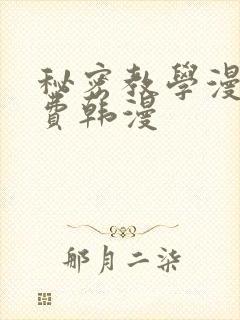 秘密教學漫
費韩漫
那月二柒